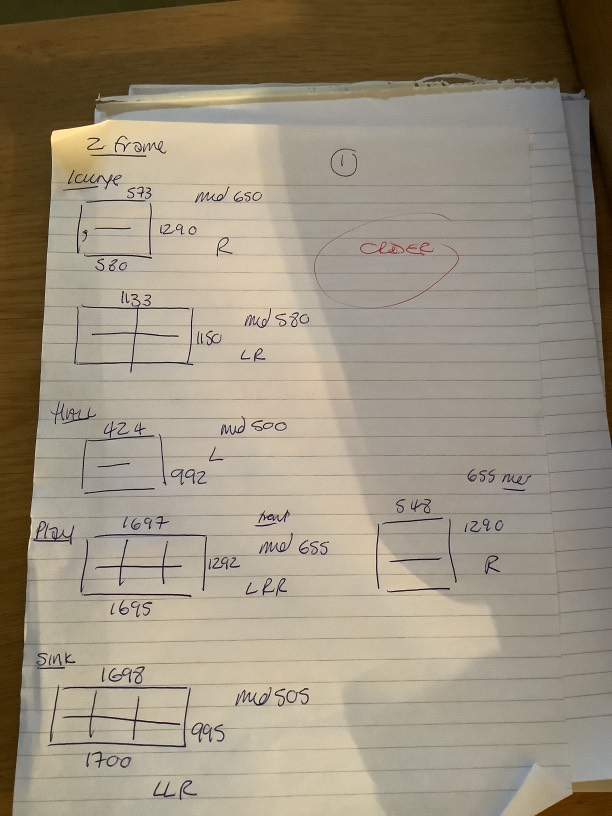 Z Frame
①
Lounge
573
mid 650
1290
R
580
ORDER
1133
mid 580
1150
LR
HALL
424
mid 500
L
992
655 mid
548
1290
R
Play
1697
front
mid 655
1292
LRR
1695
Sink
1698
mid 505
995
1700
LLR